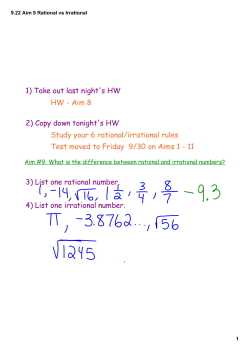 9.22 Aim 9 Rational vs Irrational
1) Take out last night's HW
HW - Aim 8
2) Copy down tonight's HW
Study your 6 rational/irrational rules
Test moved to Friday 9/30 on Aims 1 - 11
Aim #9: What is the difference between rational and irrational numbers?
3) List one rational number.
1, -14, √16, 1 1/2, 3/4, 8/7, -9.3
4) List one irrational number.
π, -3.8762..., √56
√1245
1